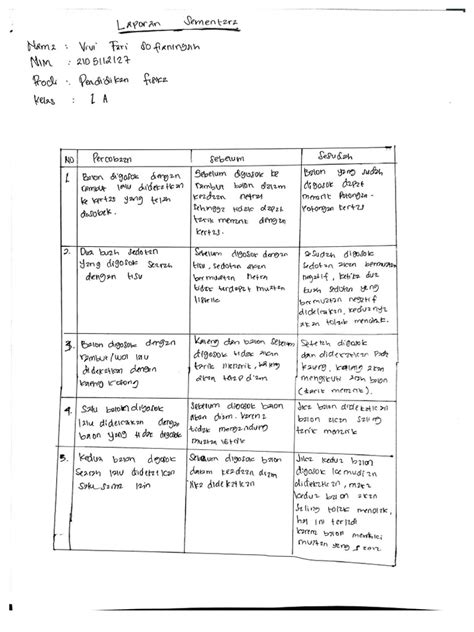 Laporan Sementara
Nama : Vivi Fari Sofianingsih
NIM : 2105112127
Prodi : Pendidikan fisika
Kelas : I A
NO Percobaan Sebelum Sesudah
1. Balon digosok dengan
rambut lalu didekatkan
ke kertas yang telah
disobek.
Sebelum digosok ke
rambut balon dalam
keadaan netral
sehingga tidak dapat
tarik menarik dengan
kertas.
Balon yang sudah
digosok dapat
menarik potongan-
potongan kertas
2. Dua buah sedotan
yang digosok searah
dengan tisu
Sebelum digosok dengan
tisu, sedotan akan
bermuatan netral
tidak terdapat muatan
listrik
Sesudah digosok
sedotan akan bermuatan
negatif, ketika dua
buah sedotan yang
bermuatan negatif
didekatkan, keduanya
akan tolak menolak.
3. Balon digosok dengan
rambut/wol lalu
didekatkan dengan
kaleng kosong
Kaleng dan balon sebelum
digosok tidak akan
tarik menarik, kaleng
akan tetap diam
Setelah digosok
dan didekatkan pada
kaleng, kaleng akan
mengikuti arah balon
(tarik menarik).
4. Satu balon digosok
lalu didekatkan dengan
balon yang tidak digosok
Sebelum digosok balon
akan diam. karena
tidak mengandung
muatan listrik
Jika balon didekatkan
balon akan saling
tarik menarik
5. Kedua balon digosok
Searah lalu didekatkan
satu sama lain
Sebelum digosok balon
dalam keadaan diam
jika didekatkan
Jika kedua balon
digosok kemudian
didekatkan, maka
kedua balon akan
saling tolak menolak,
hal ini terjadi
karena balon memiliki
muatan yang sama.